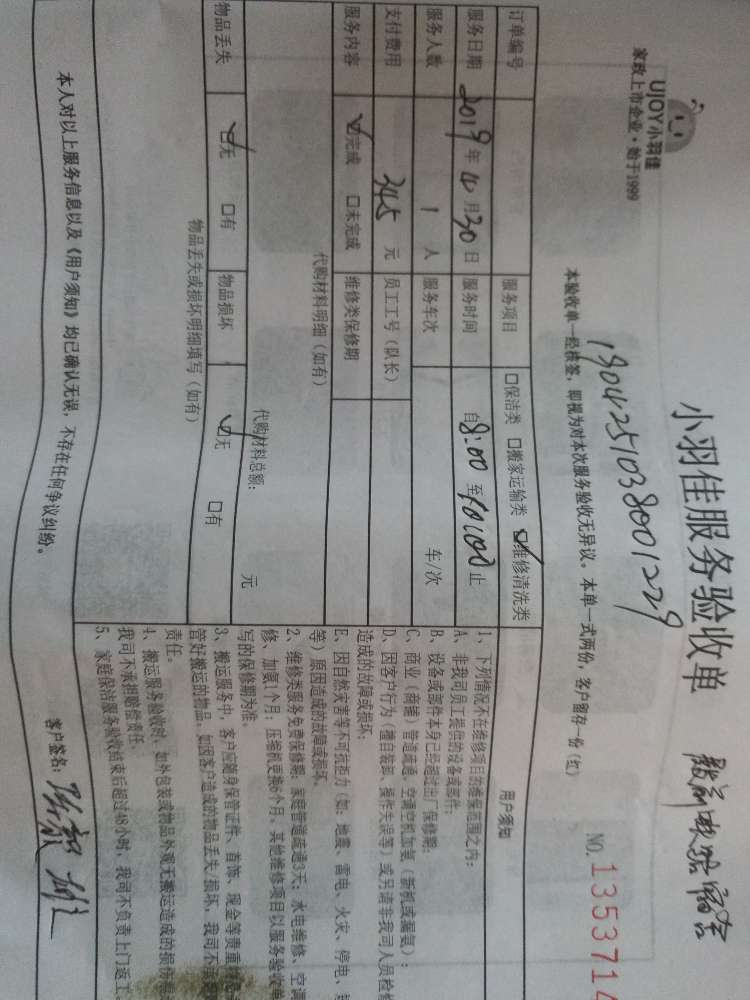 UJOY小羽佳
家政上市企业·始于1999
小羽佳服务验收单
NO.1353714
本验收单一经核签，即视为对本次服务验收无异议。本单一式两份，客户留存一份（红）
1904251038001229
订单编号 服务项目 □保洁类 □搬家运输类 ☑维修清洗类
服务日期 2019年4月30日 服务时间 自8:00至10:00止
服务人数 1人 服务车次 车/次
支付费用 345元 员工工号（队长）
服务内容 ☑完成 □未完成 维修类保修期
代购材料明细（如有）
代购材料总额： 元
物品丢失 ☑无 □有 物品损坏 ☑无 □有
物品丢失或损坏明细填写（如有）
用户须知
1、下列情况不在维修项目的维保范围之内：
A、非我司员工提供的设备或部件；
B、设备或部件本身已经超过出厂保修期；
C、商业（商铺）管道疏通、空调空机加氨（新机或漏氨）；
D、因客户行为（擅自装卸、操作失误等）或另请非我司人员检
造成的故障或损坏；
E、因自然灾害等不可抗拒力（如：地震、雷电、火灾、停电、
等）原因造成的故障或损坏。
2、维修类服务免费保修期：家庭管道疏通3天；水电维修、空调
修、加氨1个月；压缩机更换6个月。其他维修项目以服务验收单
写的保修期为准。
3、搬运服务中，客户应随身保管证件、首饰、现金等贵重
管好搬运的物品。如因客户造成的物品丢失/损坏，我司不承担
责任。
4、搬运服务验收时，如外包装或物品外观无搬运造成的损伤
我司不承担赔偿责任。
5、家庭保洁服务验收结束后超过48小时，我司不负责上门返工。
本人对以上服务信息以及《用户须知》均已确认无误，不存在任何争议纠纷。
客户签名：